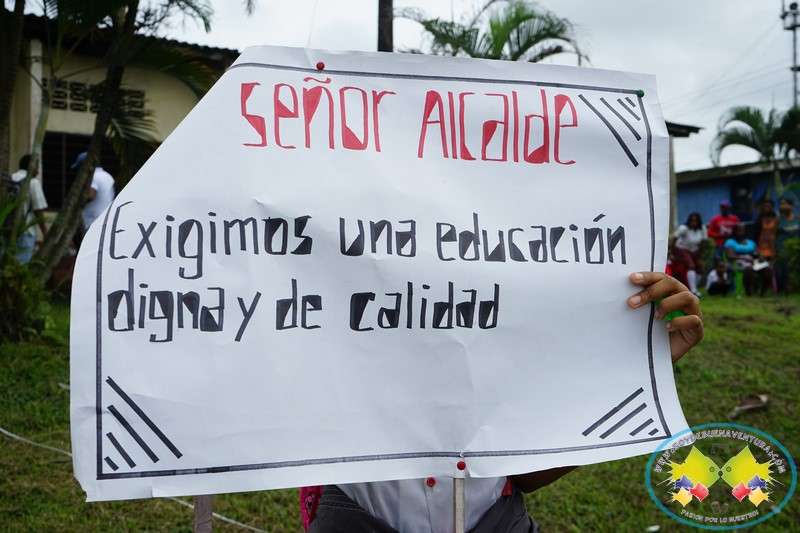 Señor Alcalde
Exigimos una educación
digna y de calidad
WWW.SOYDEBUENAVENTURA.COM
PASION POR LO NUESTRO!